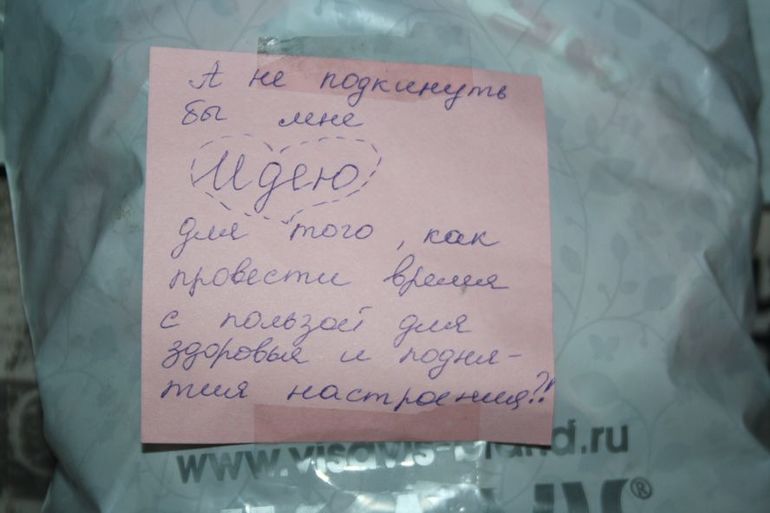 А не подкинуть
бы мне
Идею
для того, как
провести время
с пользой для
здоровья и подня-
тия настроения?!
www.visavis-brand.ru